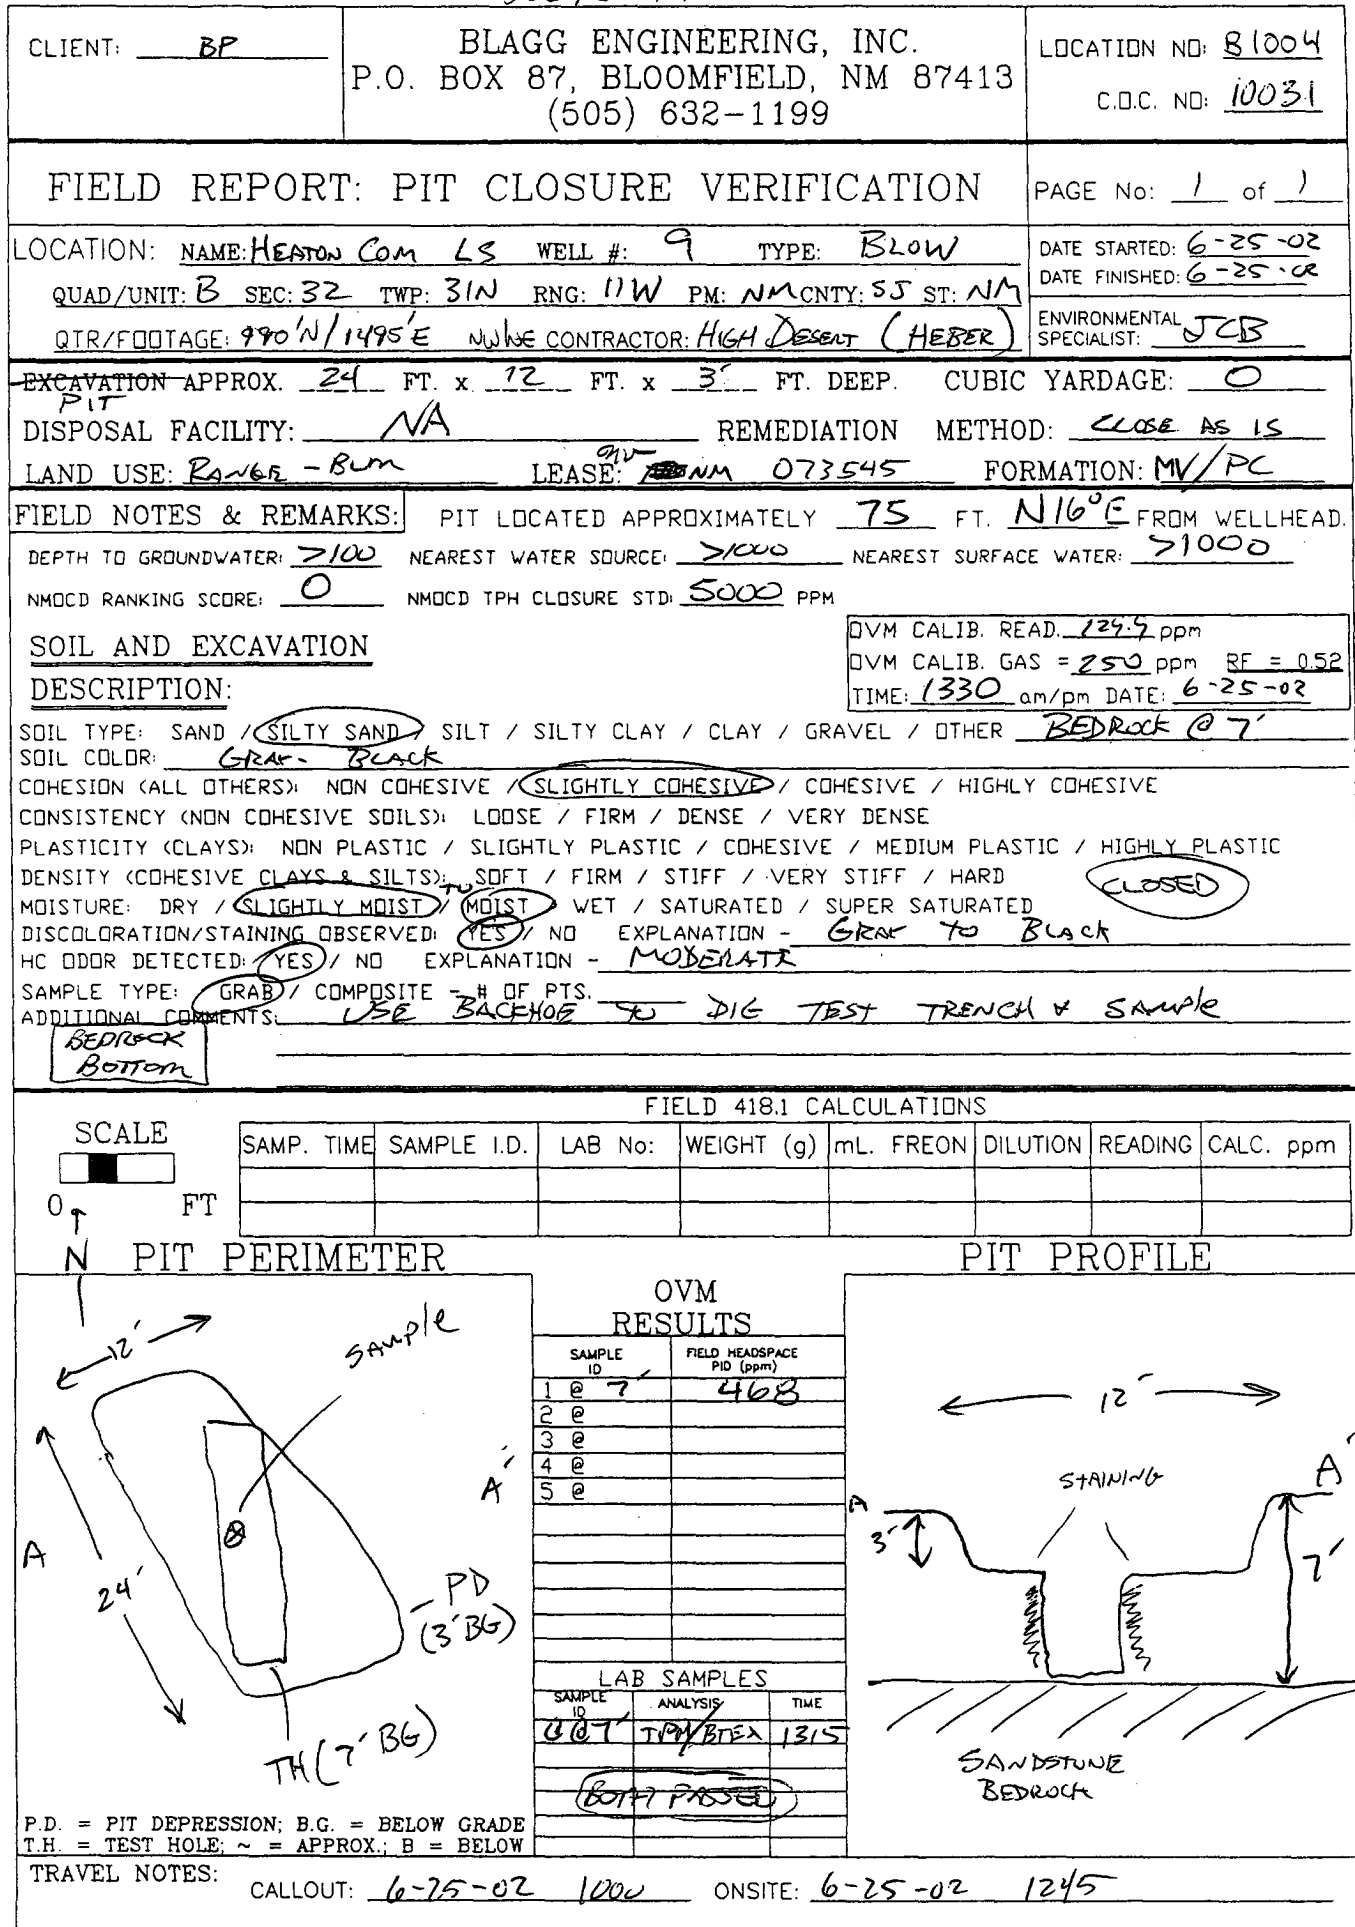 CLIENT: BP
BLAGG ENGINEERING, INC.
P.O. BOX 87, BLOOMFIELD, NM 87413
(505) 632-1199
LOCATION NO: B1004
C.O.C. NO: 10031
FIELD REPORT: PIT CLOSURE VERIFICATION
PAGE No: 1 of 1
LOCATION: NAME: HEATON COM LS WELL #: 9 TYPE: BLOW
QUAD/UNIT: B SEC: 32 TWP: 31N RNG: 11W PM: NM CNTY: SJ ST: NM
QTR/FOOTAGE: 990'N/1495'E NW/NE CONTRACTOR: HIGH DESERT (HEBER)
DATE STARTED: 6-25-02
DATE FINISHED: 6-25-02
ENVIRONMENTAL
SPECIALIST: JCB
EXCAVATION APPROX. 24 FT. x 12 FT. x 3' FT. DEEP. CUBIC YARDAGE: 0
PIT
DISPOSAL FACILITY: NA REMEDIATION METHOD: CLOSE AS IS
LAND USE: RANGE - BLM LEASE: NM 073545 FORMATION: MV/PC
FIELD NOTES & REMARKS: PIT LOCATED APPROXIMATELY 75 FT. N16°E FROM WELLHEAD.
DEPTH TO GROUNDWATER: >100 NEAREST WATER SOURCE: >1000 NEAREST SURFACE WATER: >1000
NMOCD RANKING SCORE: 0 NMOCD TPH CLOSURE STD: 5000 PPM
SOIL AND EXCAVATION
DESCRIPTION:
OVM CALIB. READ. 129.9 ppm
OVM CALIB. GAS = 250 ppm RF = 0.52
TIME: 1330 am/pm DATE: 6-25-02
SOIL TYPE: SAND / SILTY SAND / SILT / SILTY CLAY / CLAY / GRAVEL / OTHER BEDROCK @ 7'
SOIL COLOR: GRAY - BLACK
COHESION (ALL OTHERS): NON COHESIVE / SLIGHTLY COHESIVE / COHESIVE / HIGHLY COHESIVE
CONSISTENCY (NON COHESIVE SOILS): LOOSE / FIRM / DENSE / VERY DENSE
PLASTICITY (CLAYS): NON PLASTIC / SLIGHTLY PLASTIC / COHESIVE / MEDIUM PLASTIC / HIGHLY PLASTIC
DENSITY (COHESIVE CLAYS & SILTS): SOFT / FIRM / STIFF / VERY STIFF / HARD
CLOSED
MOISTURE: DRY / SLIGHTLY MOIST / TO MOIST / WET / SATURATED / SUPER SATURATED
DISCOLORATION/STAINING OBSERVED: YES / NO EXPLANATION - GRAY TO BLACK
HC ODOR DETECTED: YES / NO EXPLANATION - MODERATE
SAMPLE TYPE: GRAB / COMPOSITE - # OF PTS.
ADDITIONAL COMMENTS: USE BACKHOE TO DIG TEST TRENCH & SAMPLE
BEDROCK
BOTTOM
FIELD 418.1 CALCULATIONS
SCALE
0 FT
SAMP. TIME SAMPLE I.D. LAB No: WEIGHT (g) mL. FREON DILUTION READING CALC. ppm
N PIT PERIMETER
PIT PROFILE
12'
SAMPLE
A
A'
24'
PD
(3'BG)
TH (7'BG)
P.D. = PIT DEPRESSION; B.G. = BELOW GRADE
T.H. = TEST HOLE; ~ = APPROX.; B = BELOW
OVM
RESULTS
SAMPLE ID FIELD HEADSPACE PID (ppm)
1 @ 7' 468
2 @
3 @
4 @
5 @
LAB SAMPLES
SAMPLE ID ANALYSIS TIME
@7' TPH/BTEX 1315
BOTH PASSED
12'
STAINING
A
A'
3'
7'
SANDSTONE
BEDROCK
TRAVEL NOTES: CALLOUT: 6-25-02 1000 ONSITE: 6-25-02 1245